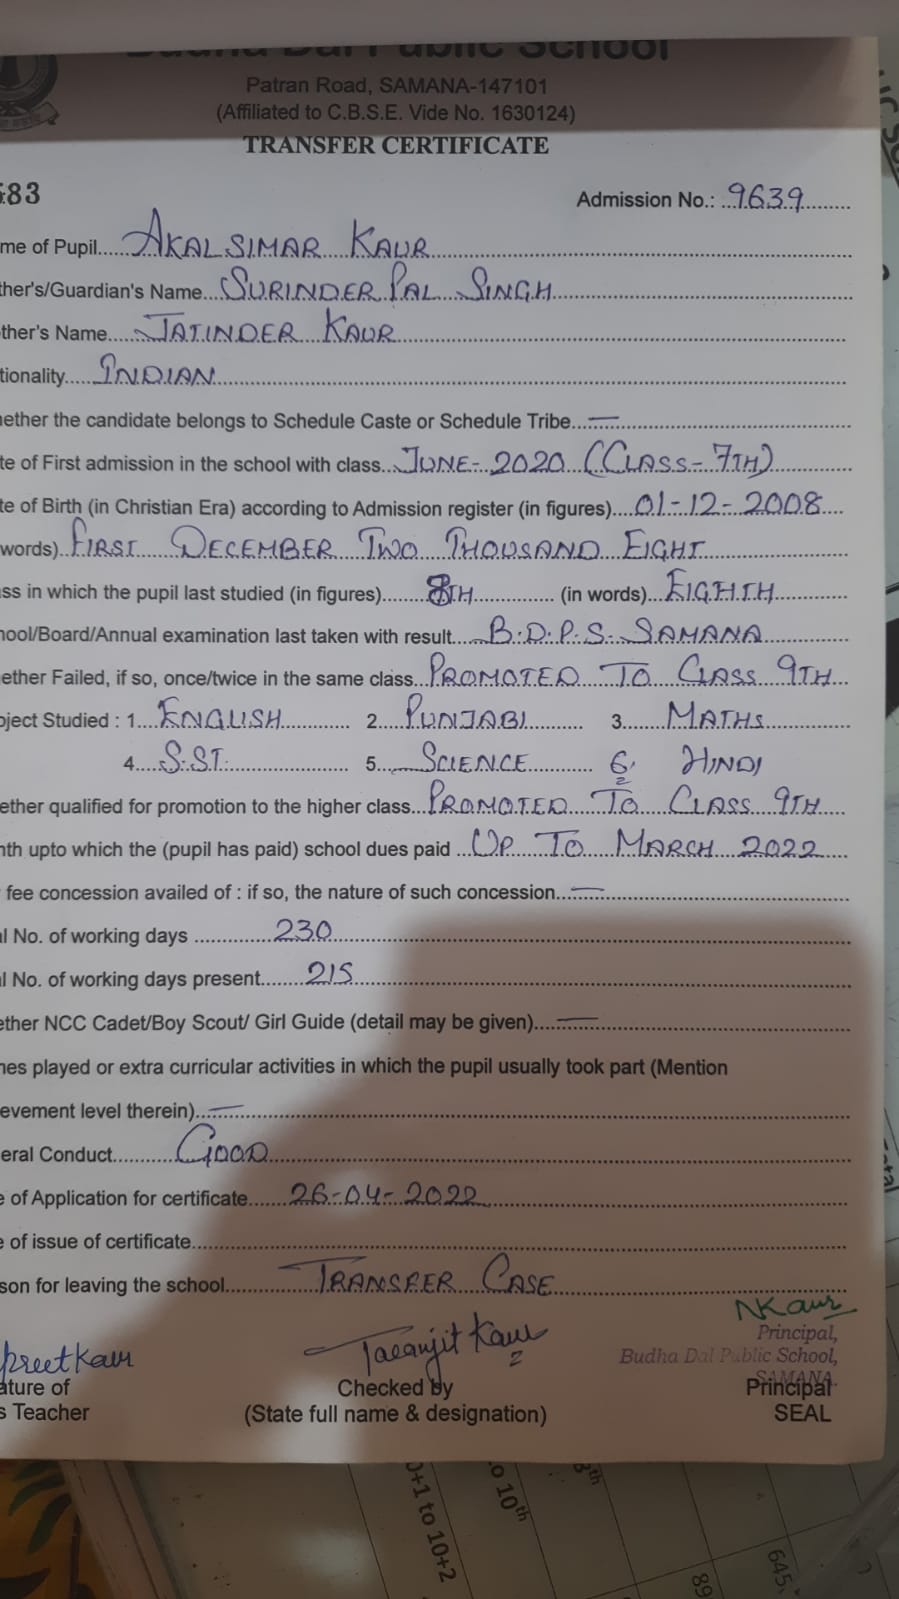 Budha Dal Public School
Patran Road, SAMANA-147101
(Affiliated to C.B.S.E. Vide No. 1630124)
TRANSFER CERTIFICATE
83 Admission No.: 9639
me of Pupil AKALSIMAR KAUR
ther's/Guardian's Name SURINDER PAL SINGH
ther's Name JATINDER KAUR
tionality INDIAN
ether the candidate belongs to Schedule Caste or Schedule Tribe —
te of First admission in the school with class JUNE-2020 (CLASS-7TH)
te of Birth (in Christian Era) according to Admission register (in figures) 01-12-2008
words) FIRST DECEMBER TWO THOUSAND EIGHT
ss in which the pupil last studied (in figures) 8TH (in words) EIGHTH
ool/Board/Annual examination last taken with result B.D.P.S. SAMANA
ether Failed, if so, once/twice in the same class PROMOTED TO CLASS 9TH
ject Studied : 1. ENGLISH 2. PUNJABI 3. MATHS
4. S.ST. 5. SCIENCE 6. HINDI
ether qualified for promotion to the higher class PROMOTED TO CLASS 9TH
nth upto which the (pupil has paid) school dues paid UP TO MARCH 2022
fee concession availed of : if so, the nature of such concession —
l No. of working days 230
l No. of working days present 215
ether NCC Cadet/Boy Scout/ Girl Guide (detail may be given) —
nes played or extra curricular activities in which the pupil usually took part (Mention
evement level therein) —
eral Conduct GOOD
e of Application for certificate 26-04-2022
e of issue of certificate
son for leaving the school TRANSFER CASE
NKaur
Principal,
preet Kaur Taranjit Kaur Budha Dal Public School,
SAMANA.
ature of Checked by Principal
s Teacher (State full name & designation) SEAL
0+1 to 10+2
o 10th
8th
645,
89